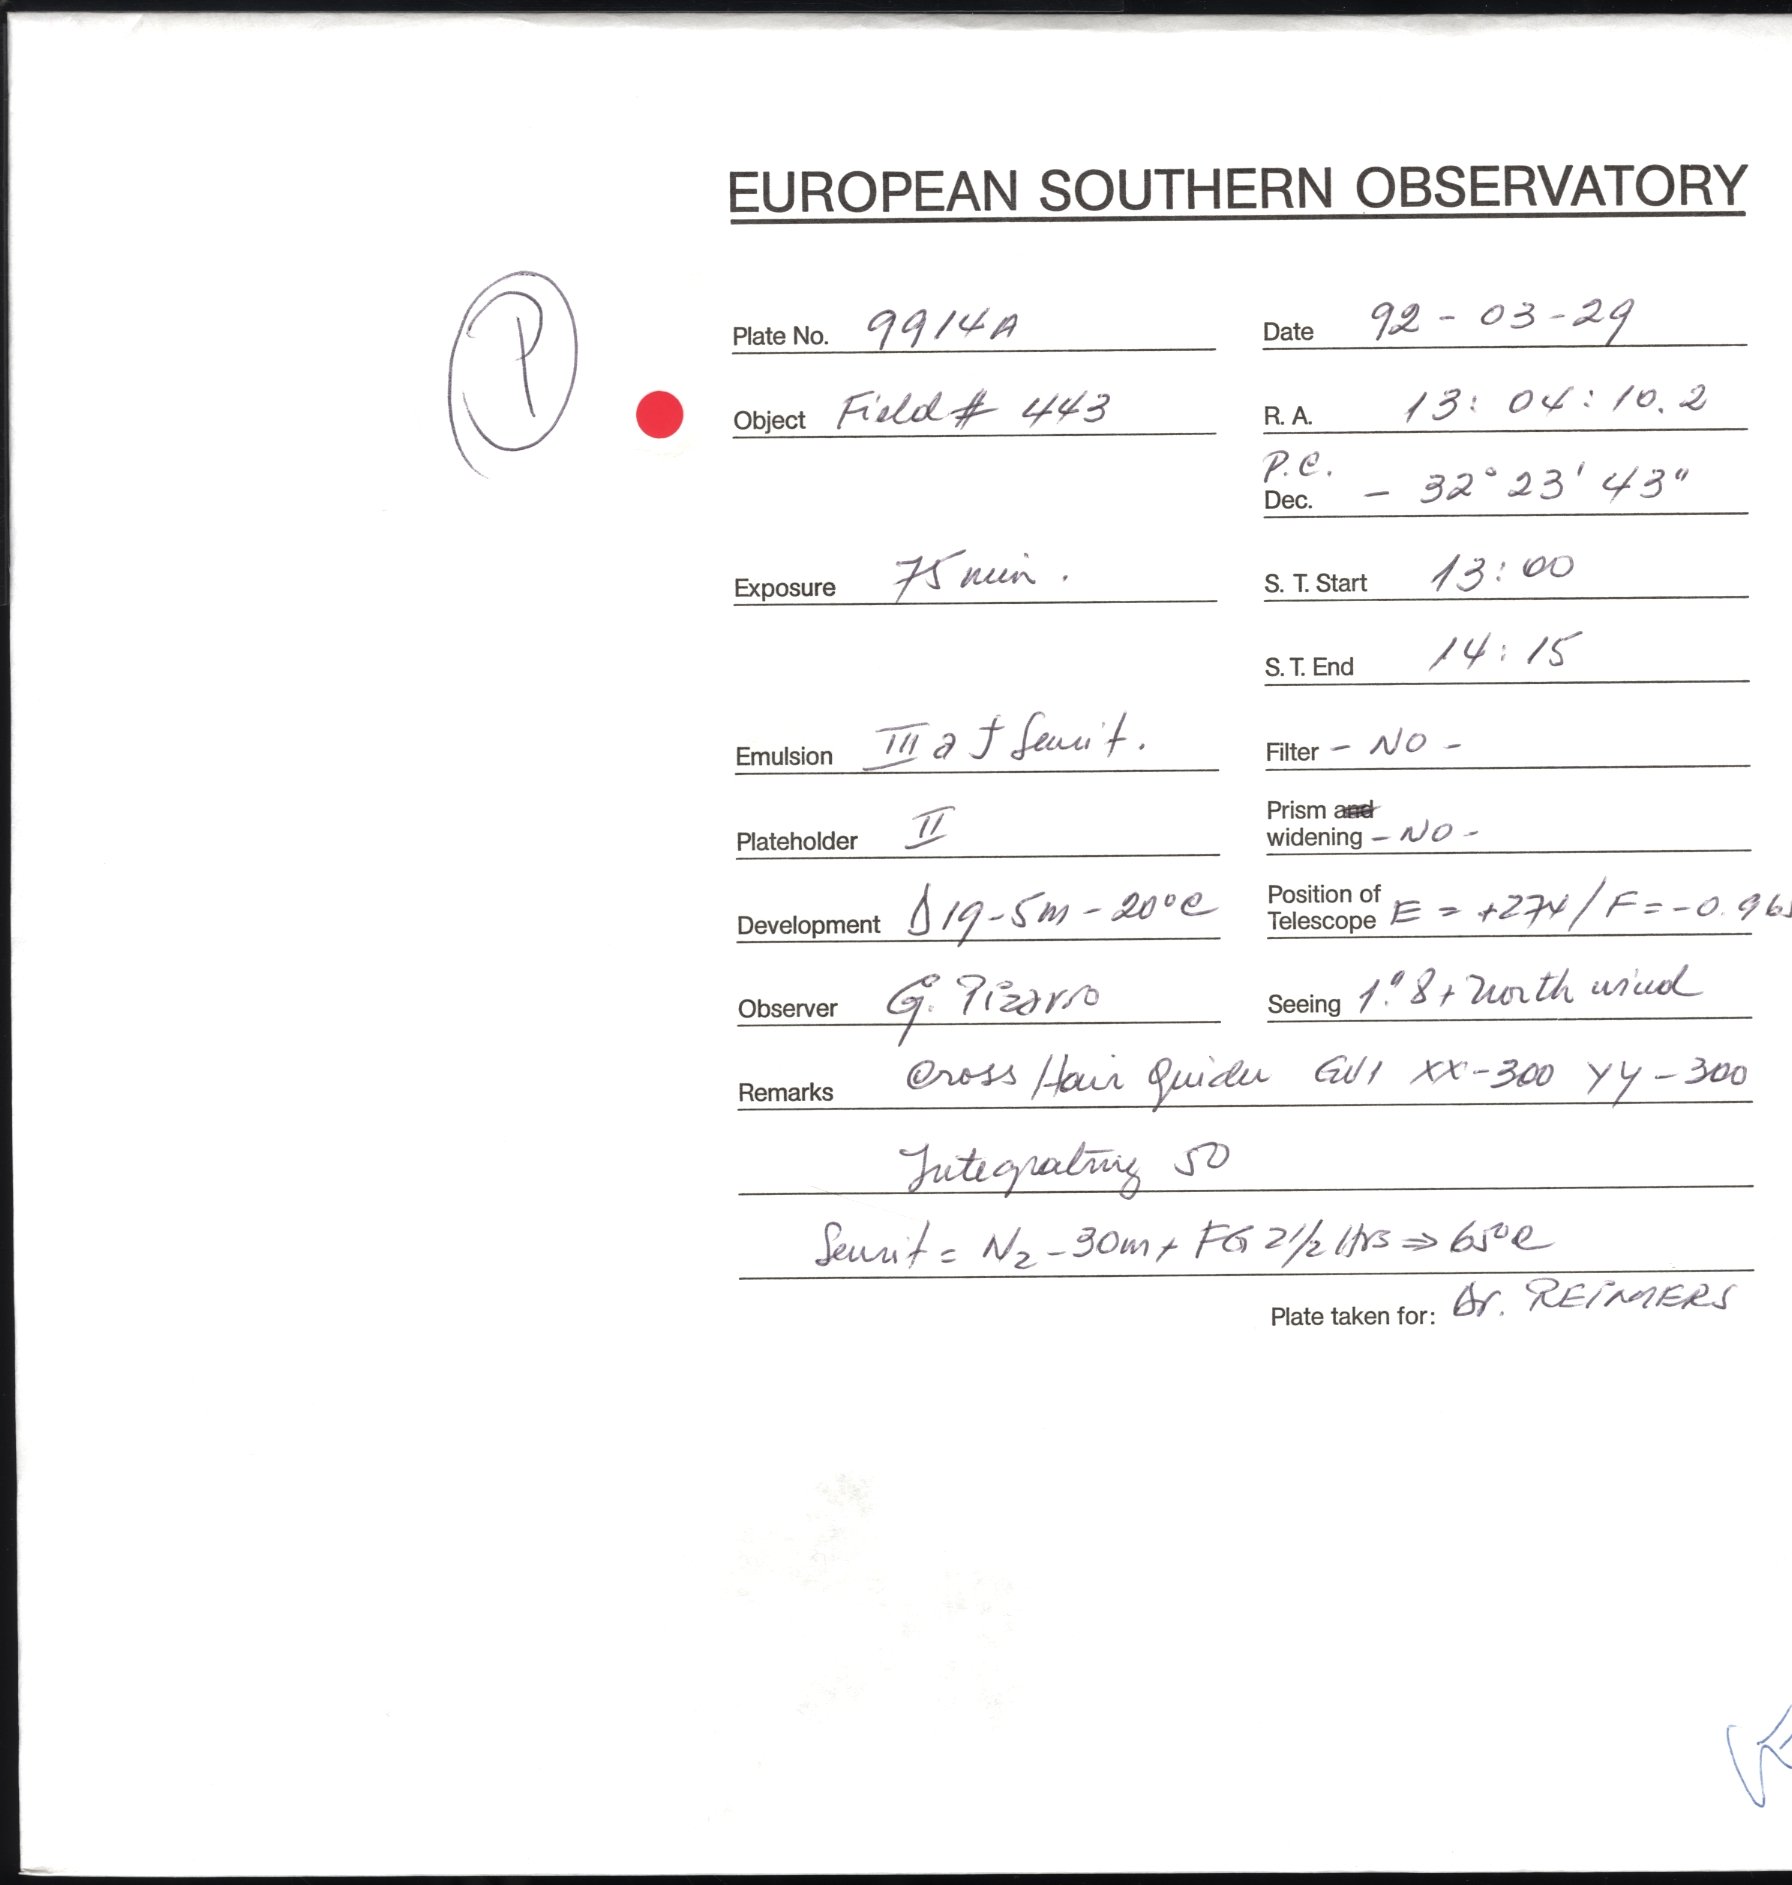 EUROPEAN SOUTHERN OBSERVATORY
P
Plate No. 9914A Date 92-03-29
Object Field # 443 R. A. 13: 04: 10.2
P.C.
Dec. - 32° 23' 43"
Exposure 75 min. S. T. Start 13:00
S. T. End 14:15
Emulsion III a J Sensit. Filter - NO -
Plateholder II Prism and
widening - NO -
Development D19-5m-20°C Position of
Telescope E = +274/F=-0.965
Observer G. Pizarro Seeing 1".8 + North wind
Remarks Cross Hair Guider GV1 XX-300 YY-300
Integrating 50
Sensit = N2-30m + FG 2 1/2 Hrs ⇒ 65°C
Plate taken for: Dr. REIMERS